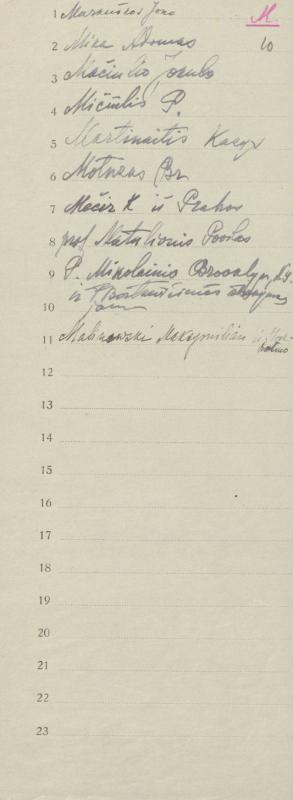 M.
1 Maranucos Jono
2 Mira Adomas 10
3 Mačiulio Jokubo
4 Mičiulis P.
5 Martinaitis Kazys
6 Motuzas Br.
7 Mečir K iš Prahos
8 prof. Natalionis Povilas
9 P. Mikolainio
ir
10 jam
11 Malinowski Maksymilian iš
12
13
14
15
16
17
18
19
20
21
22
23